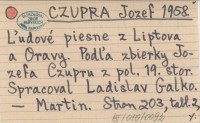 CZUPRA Jozef 1958.
Ľudové piesne z Liptova
a Oravy. Podľa zbierky Jo-
zefa Czupru z pol. 19. stor.
Spracoval Ladislav Galko.
— Martin. Strom 203, tall. 2,